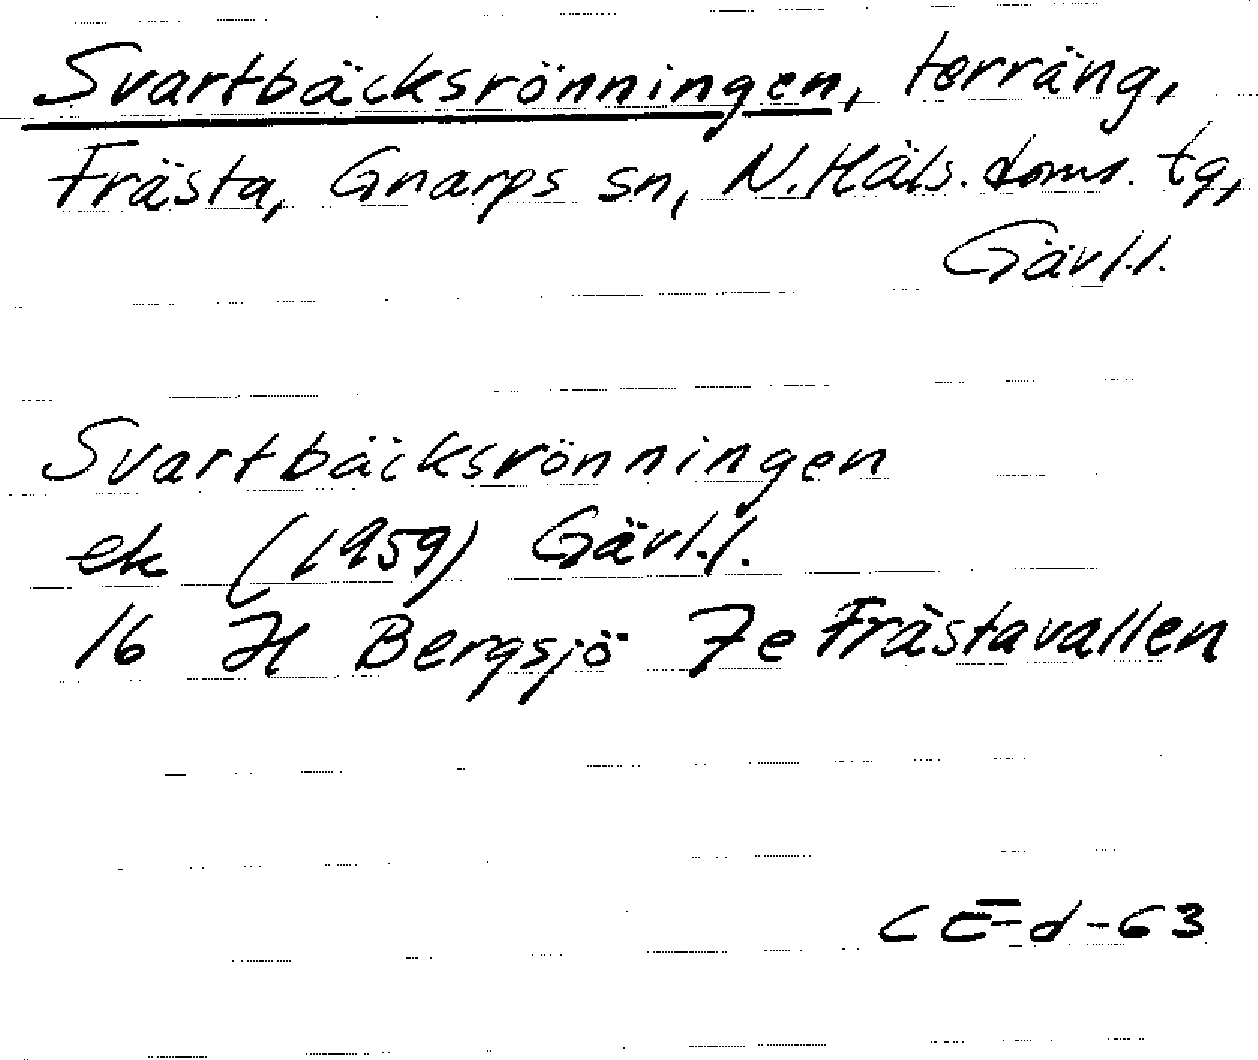 Svartbäcksrönningen, terräng,
Frästa, Gnarps sn, N. Häls. doms. tg,
Gävl.l.
Svartbäcksrönningen
ek (1959) Gävl.l.
16 H Bergsjö 7e Frästavallen
CEd-63